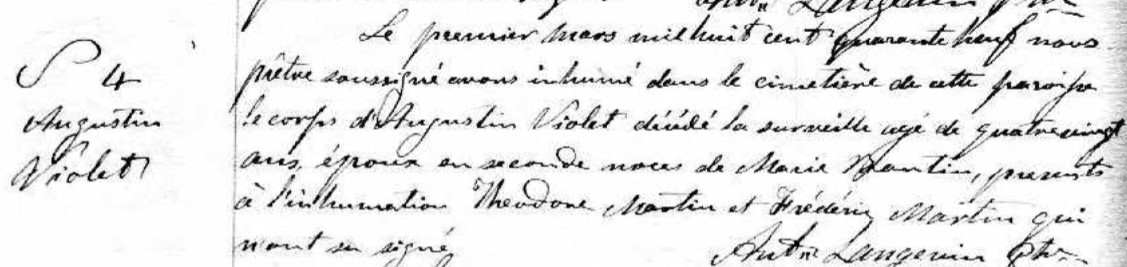 Antn Langevin Ptre
Le premier mars mil huit cent quarante neuf nous
S 4
prêtre soussigné avons inhumé dans le cimetière de cette paroisse
Augustin
le corps d'Augustin Violet décédé la surveille agé de quatrevingt
Violet
ans, époux en seconde noces de Marie, presents
à l'inhumation Theodore Martin et Frédéric Martin qui
n'ont su signé
Antn Langevin Ptre